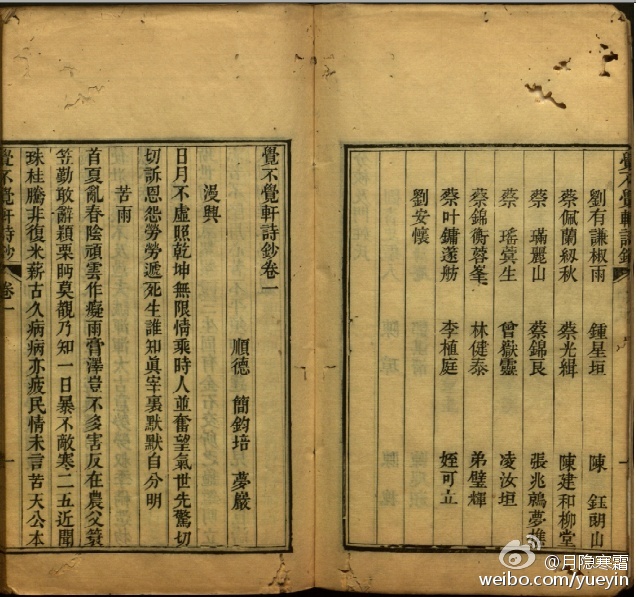 劉有謙椒雨　鍾星垣　陳　鈺朗山
蔡佩蘭紉秋　蔡光緝　陳建和柳堂
蔡　璊麗山　蔡錦㫰　張兆鷞夢
蔡　瑤蓂生　曾嶽靈　凌汝垣
蔡錦衡蓉峯　林健泰　弟璧輝
蔡叶鏞蓬舫　李植庭　姪可立
劉安懷
覺不覺軒詩鈔卷一
順德　簡鈞培　夢巖
漫興
日月不虛照乾坤無限情乘時人並奮望氣世先驚切
切訴恩怨勞勞遞死生誰知眞宰裏默默自分明
苦雨
首夏亂春陰頑雲作癡雨膏澤豈不多害反在農父簑
笠勤敢辭穎栗眄莫覩乃知一日暴不敵寒二五近聞
珠桂騰非復米薪古久病病亦疲民情未言苦天公本
覺不覺軒詩鈔　卷一　一
@月隐寒霜
weibo.com/yueyin